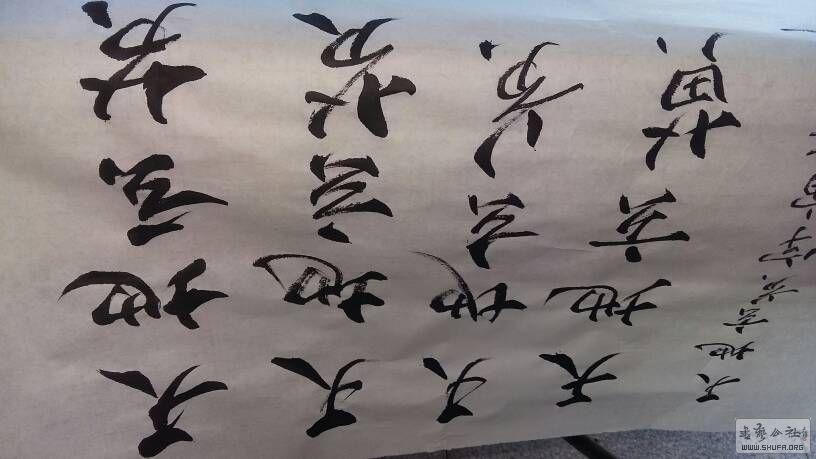 天地玄黄
天地玄黄
天地玄黄
天地玄黄
天地玄黄宇宙
书艺公社
WWW.SHUFA.ORG